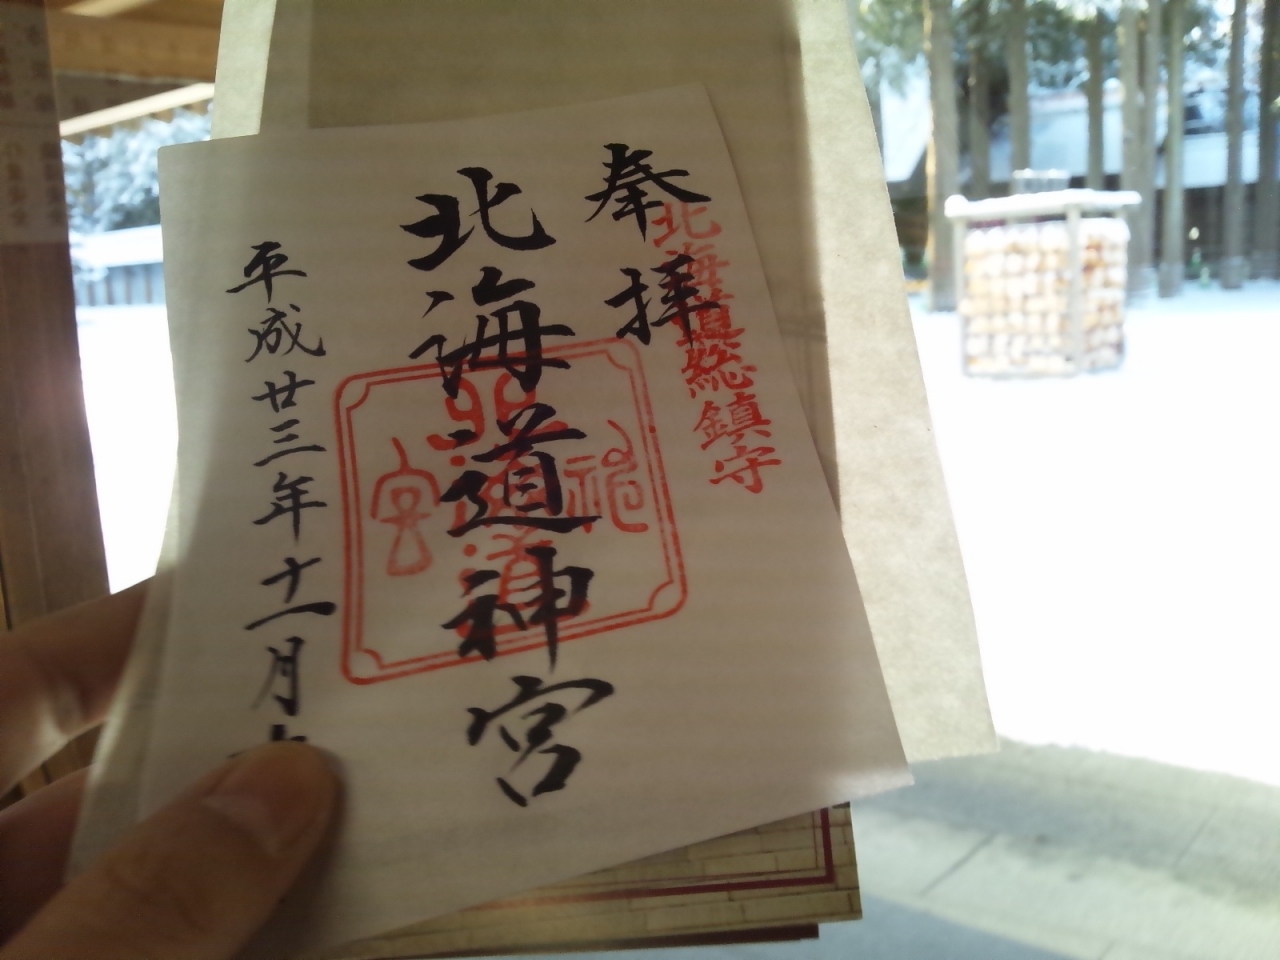 奉拝
北海道総鎮守
北海道神宮
平成廿三年十一月